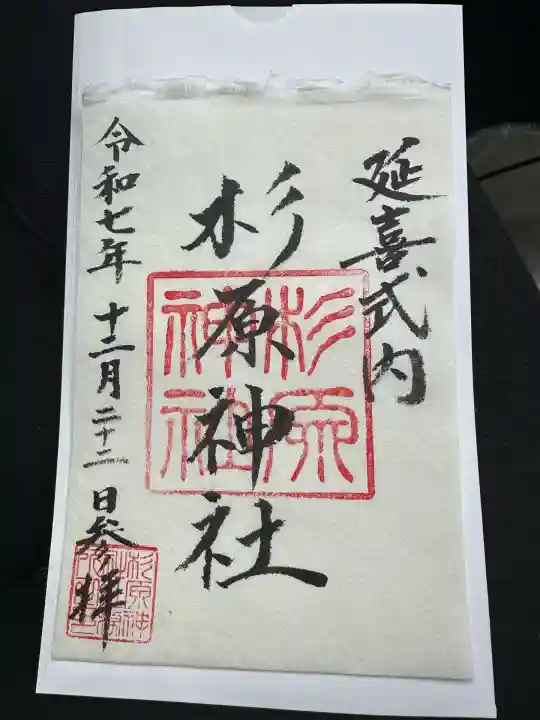 延喜式内
杉原神社
杉原神社
令和七年 十二月二十二日参拝